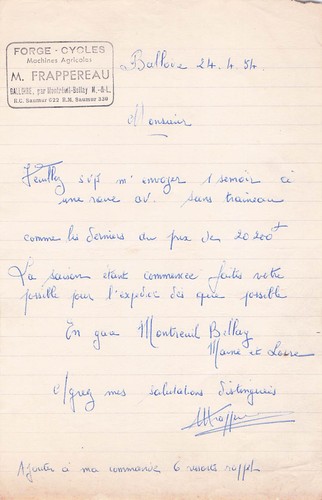 FORGE - CYCLES
Machines Agricoles
M. FRAPPEREAU
BALLOIRE, par Montreuil-Bellay M.-&-L.
R.C. Saumur 022 R.M. Saumur 339
Balloire 24.4.54.
Monsieur
Veuillez s'v.p m'envoyer 1 semoir à
une roue av. sans traineau
comme les derniers au prix de 20200f
La saison étant commencée faites votre
possible pour l'expédier dès que possible
En gare Montreuil Bellay
Maine et Loire
agréez mes salutations distinguées
Ajouter à ma commande 6 ressorts